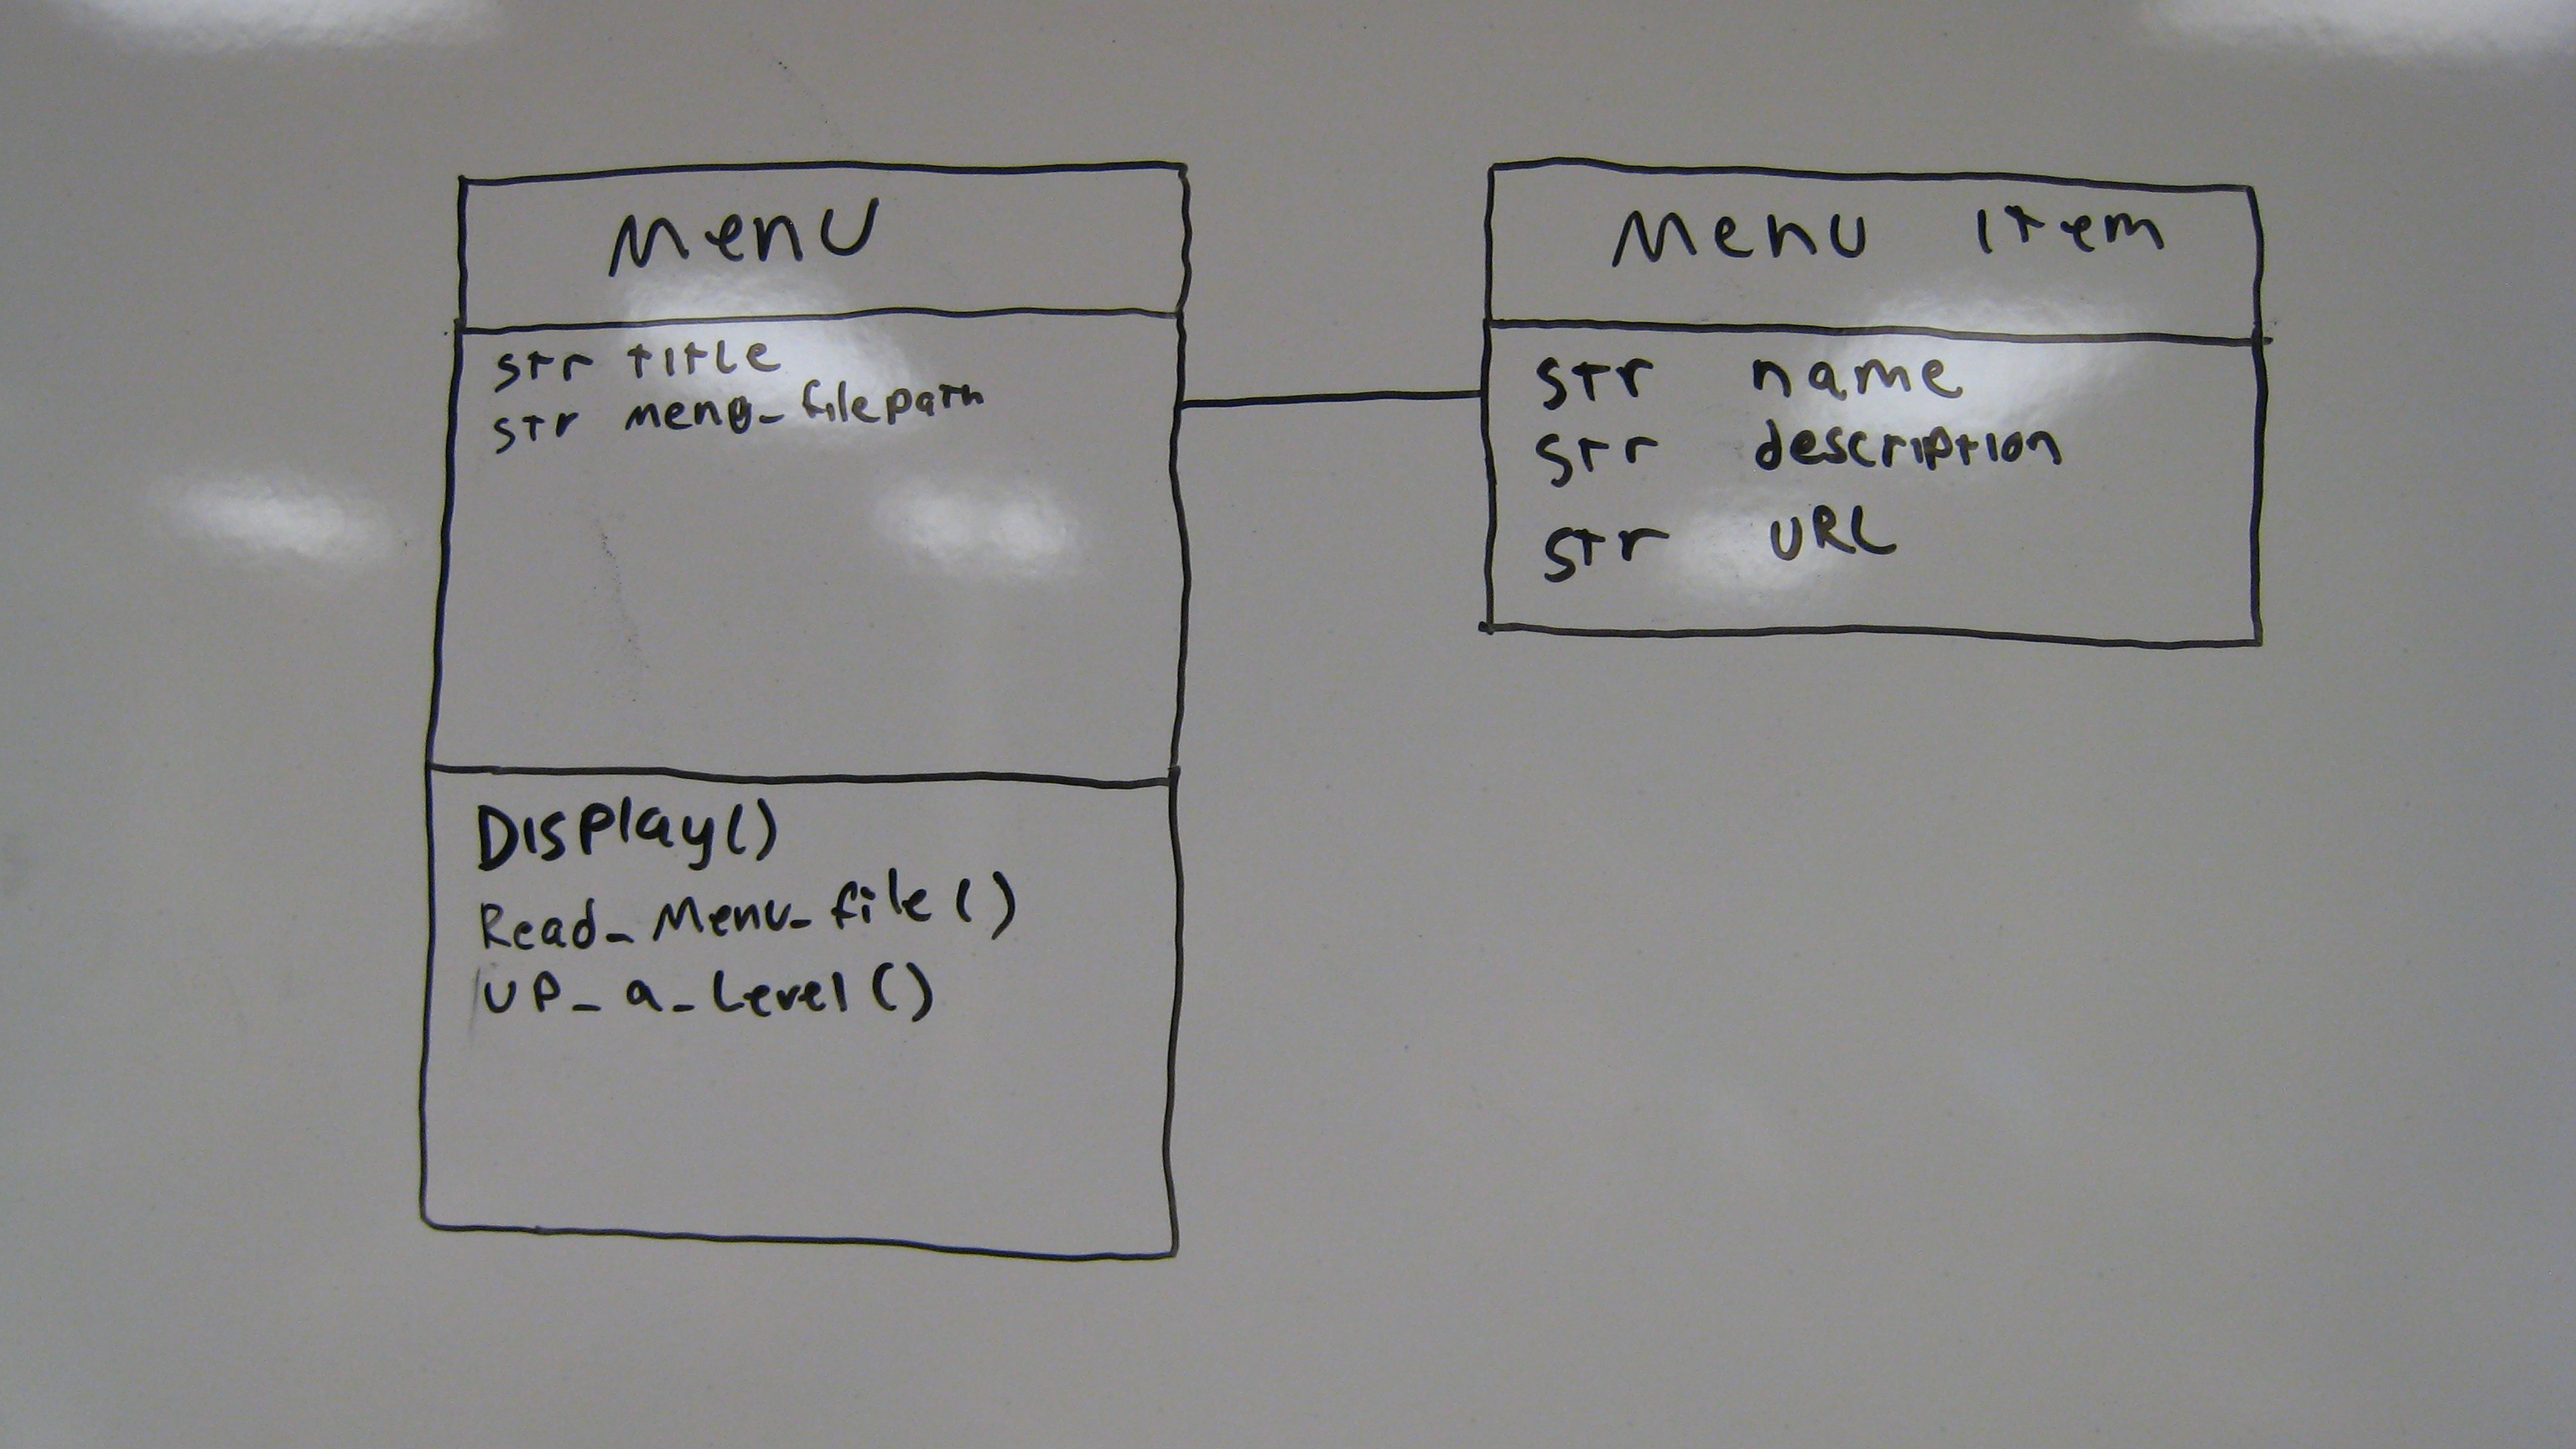 Menu
str title
str menu_filepath
Display()
Read_Menu_file()
UP_a_Level()
Menu Item
str name
str description
str URL